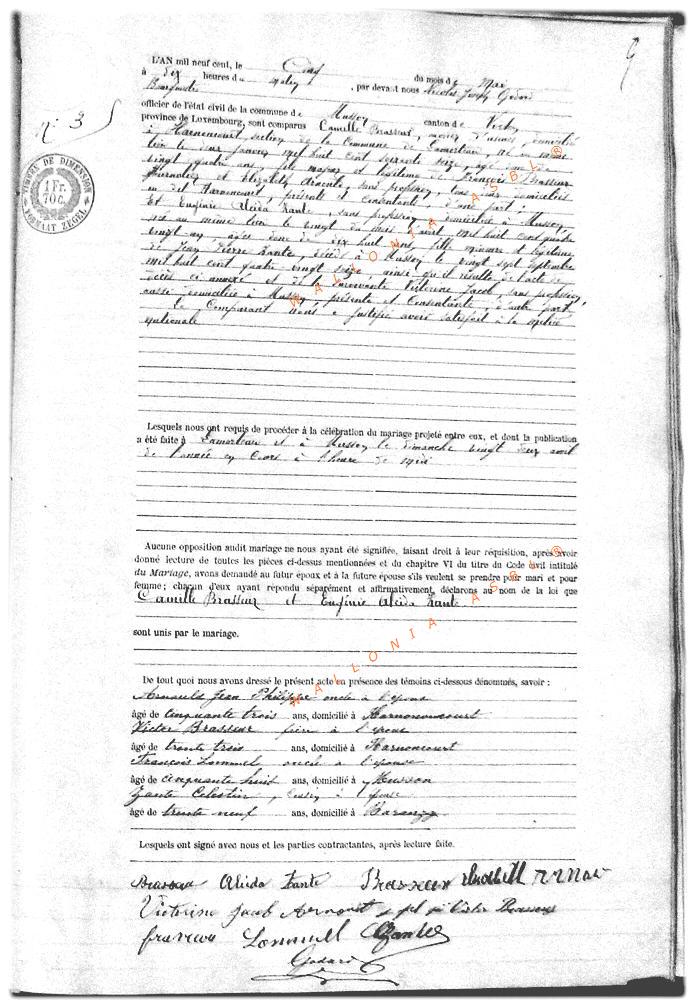 9
L'AN mil neuf cent, le Cinq du mois de Mai
à Dix heures du matin, par devant nous Nicolas Joseph Godard
Bourgmestre
officier de l'état civil de la commune de Musson canton de Virton
n° 3
province de Luxembourg, sont comparus Camille Brasseur, domicilié
à Harnoncourt, section de la Commune de Lamorteau, né au même
lieu le deux janvier mil huit cent septante seize, âgé donc de
vingt quatre ans, fils majeur et légitime de François Brasseur
et Elisabeth, sans profession, tous domiciliés
au dit Harnoncourt, présents et consentants, d'une part;
Et Eugénie Alcida Zante, sans profession, domiciliée à Musson,
née au même lieu le vingt du mois d'avril mil huit cent quatre
vingt, âgée donc de dix huit ans, fille mineure et légitime
de Jean Pierre Zante, décédé à Musson le vingt sept septembre
mil huit cent quatre vingt, ainsi qu'il résulte de l'acte de
décès ci annexé et de la survivante Victorine Jacob, sans profession,
aussi domiciliée à Musson, présente et Consentante, d'autre part
Le Comparant nous a justifié avoir satisfait à la milice
nationale
TIMBRE DE DIMENSION
1 Fr.
70 c.
FORMAAT ZEGEL
Lesquels nous ont requis de procéder à la célébration du mariage projeté entre eux, et dont la publication
a été faite à Lamorteau et à Musson le dimanche vingt deux avril
de l'année en Cours à l'heure de midi
Aucune opposition audit mariage ne nous ayant été signifiée, faisant droit à leur réquisition, après avoir
donné lecture de toutes les pièces ci-dessus mentionnées et du chapitre VI du titre du Code civil intitulé
du Mariage, avons demandé au futur époux et à la future épouse s'ils veulent se prendre pour mari et pour
femme; chacun d'eux ayant répondu séparément et affirmativement, déclarons au nom de la loi que
Camille Brasseur et Eugénie Alcida Zante
sont unis par le mariage.
De tout quoi nous avons dressé le présent acte en présence des témoins ci-dessous dénommés, savoir :
Arnould Jean Philippe oncle à l'époux
âgé de cinquante trois ans, domicilié à Harnoncourt
Victor Brasseur frère à l'époux
âgé de trente trois ans, domicilié à Harnoncourt
François Lommel oncle à l'épouse
âgé de cinquante huit ans, domicilié à Musson
Zante Celestin, cousin à l'épouse
âgé de trente neuf ans, domicilié à Baranzy
Lesquels ont signé avec nous et les parties contractantes, après lecture faite.
Brasseur Alcida Zante Brasseur
Victorine Jacob Arnould Victor Brasseur
francois Lommel CZante
Godard
WALLONIA ASBL ®
WALLONIA ASBL ®